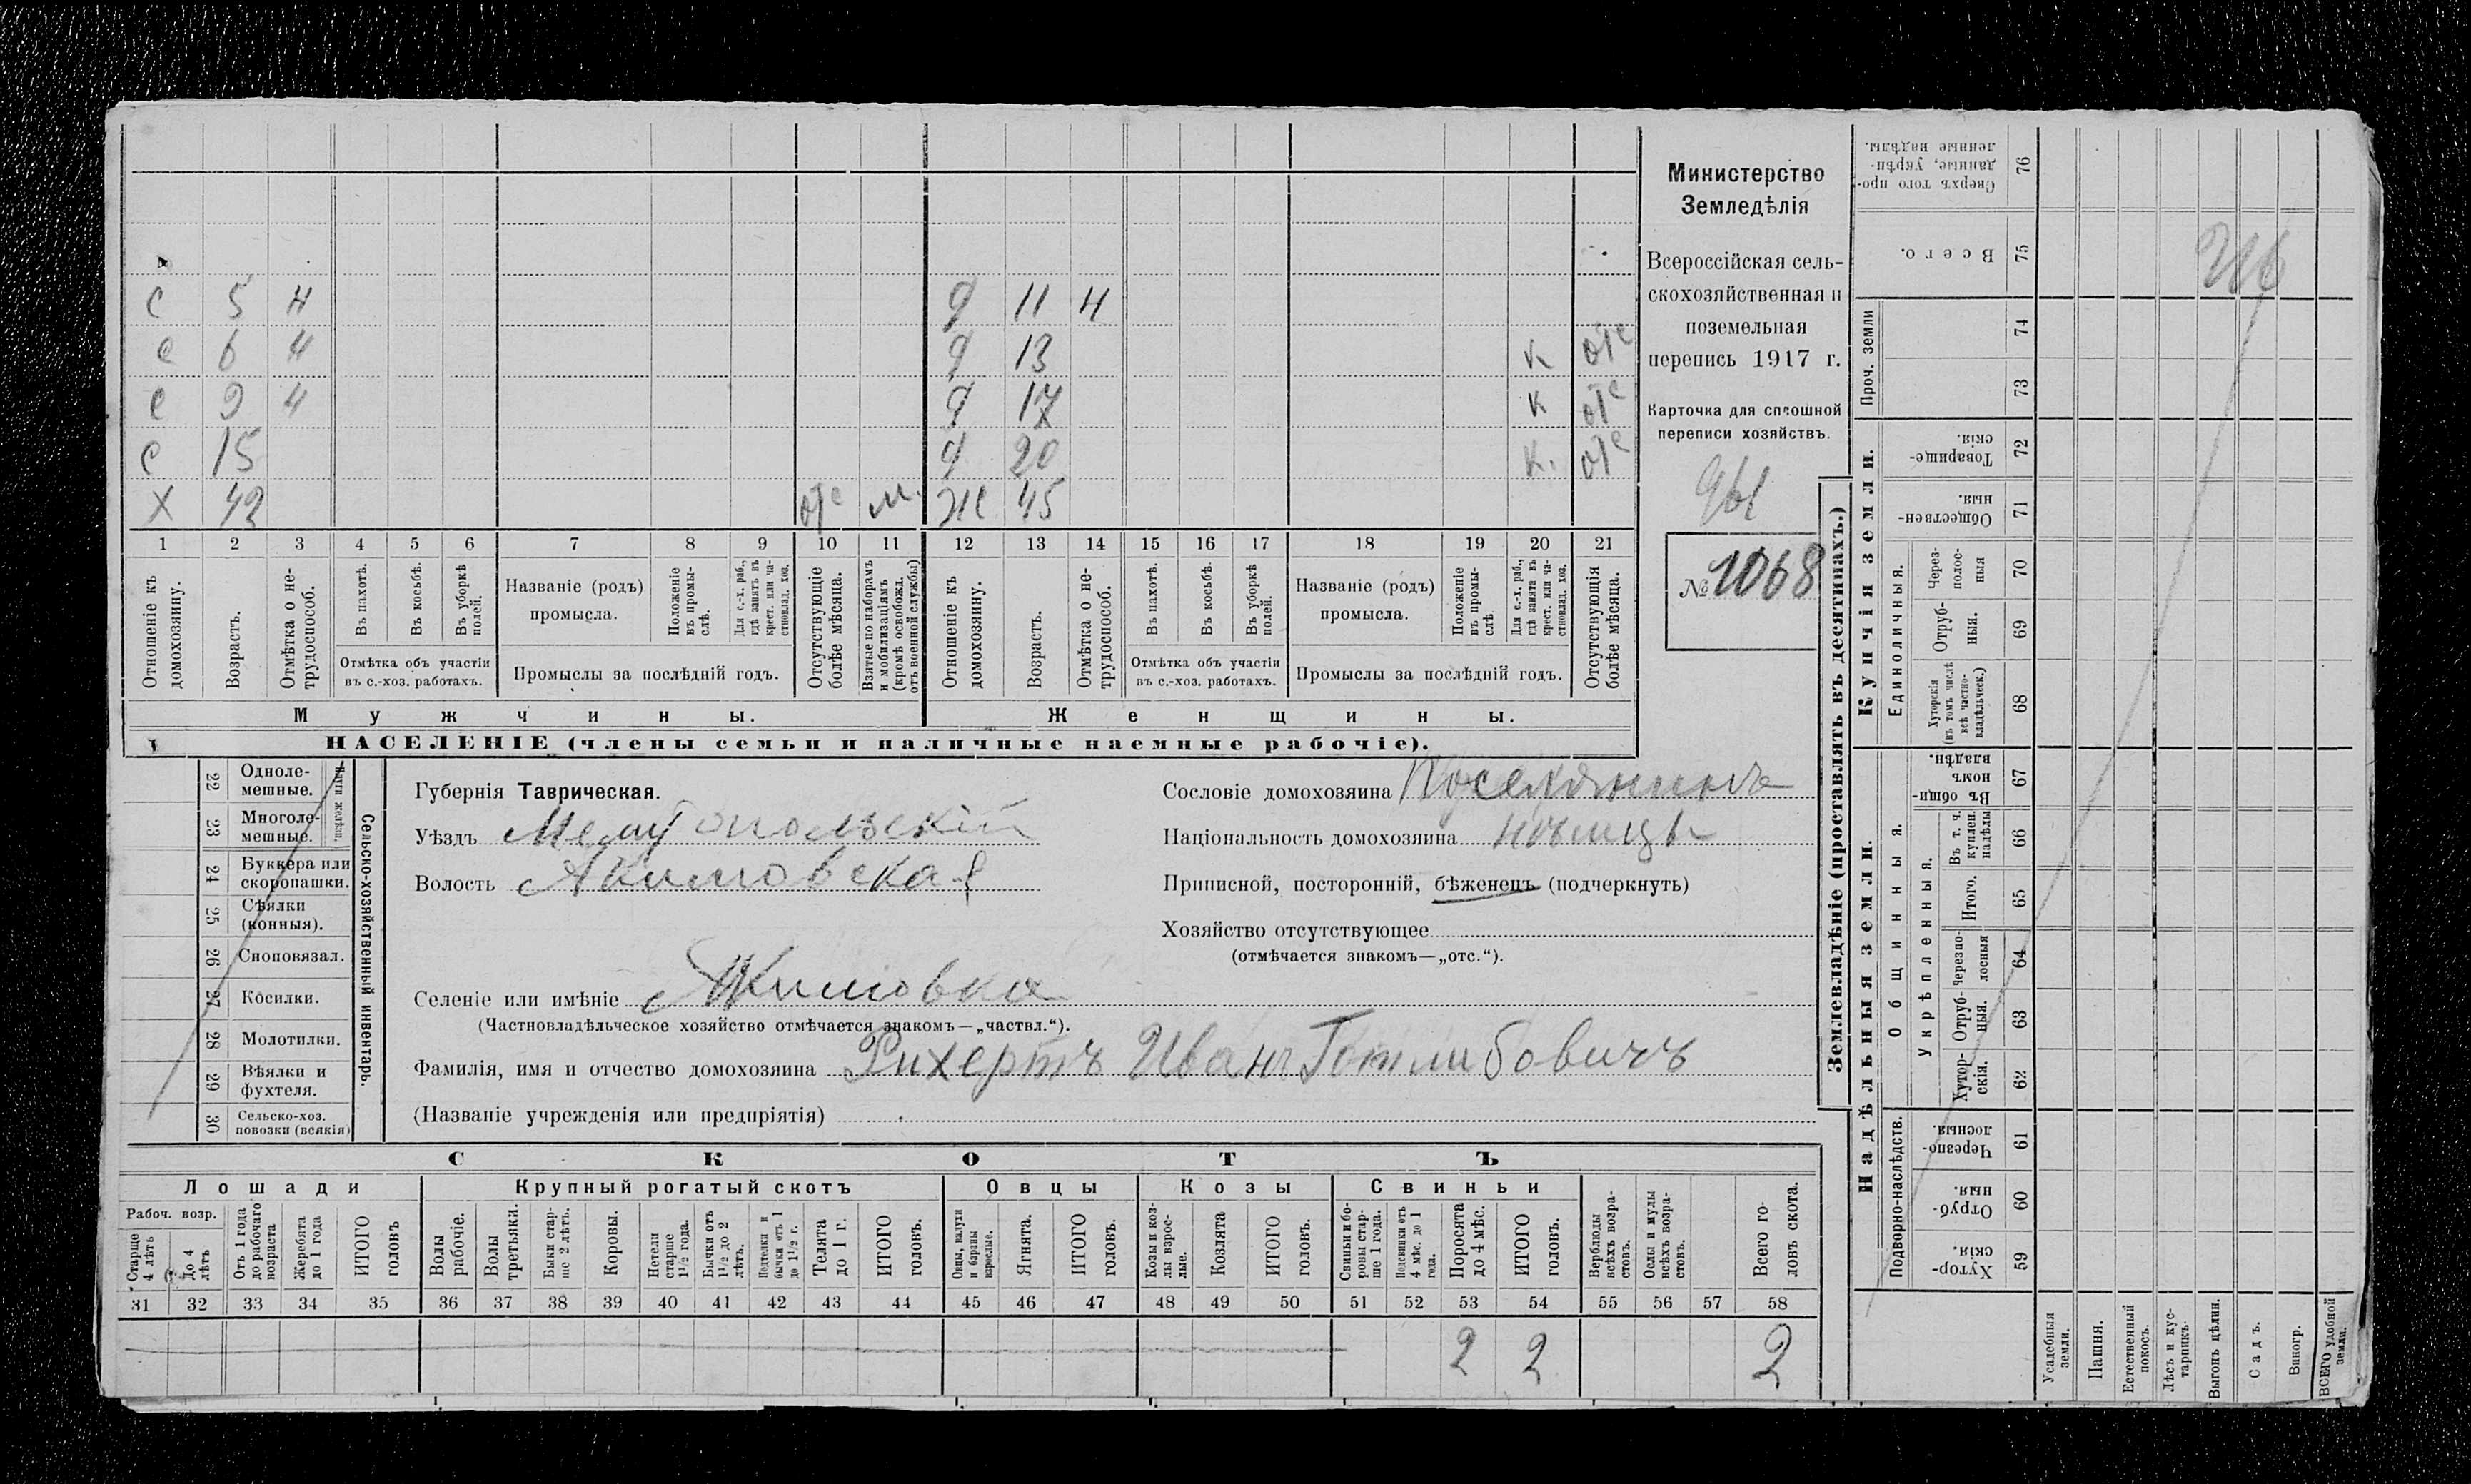 С 5 н д 11 н
с 6 н д 13 к отс
с 9 н д 17 к отс
с 15 д 20 к. отс
Х 42 отс м. Ж 45
1 2 3 4 5 6 7 8 9 10 11 12 13 14 15 16 17 18 19 20 21
Отношеніе къ домохозяину.
Возрастъ.
Отмѣтка о не-
трудоспособ.
Въ пахотѣ.
Въ косьбѣ.
Въ уборкѣ полей.
Отмѣтка объ участіи
въ с.-хоз. работахъ.
Названіе (родъ)
промысла.
Положеніе въ промы-
слѣ.
Для с.-х. раб.,
гдѣ занятъ въ
крест. или ча-
стновлад. хоз.
Промыслы за послѣдній годъ.
Отсутствующіе
болѣе мѣсяца.
Взятые по наборамъ
и мобилизаціямъ
(кромѣ освобожд.
отъ военной службы)
Отношеніе къ
домохозяину.
Возрастъ.
Отмѣтка о не-
трудоспособ.
Въ пахотѣ.
Въ косьбѣ.
Въ уборкѣ полей.
Отмѣтка объ участіи
въ с.-хоз. работахъ.
Названіе (родъ)
промысла.
Положеніе
въ промы-
слѣ
Для с.-х. раб.,
гдѣ занята въ
крест. или ча-
стновлад. хоз.
Промыслы за послѣдній годъ.
Отсутствующія
болѣе мѣсяца.
Мужчины. Женщины.
НАСЕЛЕНІЕ (члены семьи и наличные наемные рабочіе).
Министерство
Земледѣлія
Всероссійская сель-
скохозяйственная и
поземельная
перепись 1917 г.
Карточка для сплошной
переписи хозяйствъ.
№ 1068
22 Одноле-
мешные.
23 Многоле-
мешные.
24 Буккера или
скоропашки.
25 Сѣялки
(конныя).
26 Сноповязал.
27 Косилки.
28 Молотилки.
29 Вѣялки и
фухтеля.
30 Сельско-хоз.
повозки (всякія)
Сельско-хозяйственный инвентарь.
Губернія Таврическая.
Уѣздъ Мелитопольскій
Волость Акимовская
Селеніе или имѣніе Акимовка
(Частновладѣльческое хозяйство отмѣчается знакомъ—„частвл.“).
Фамилія, имя и отчество домохозяина Рихертъ Иванъ Готлибовичъ
(Названіе учрежденія или предпріятія)
Сословіе домохозяина Поселянинъ
Національность домохозяина нѣмцы
Приписной, посторонній, бѣженецъ (подчеркнуть)
Хозяйство отсутствующее
(отмѣчается знакомъ—„отс.“).
СКОТЪ
Лошади Крупный рогатый скотъ Овцы Козы Свиньи
Рабоч. возр.
Старше
4 лѣтъ
До 4
лѣтъ
Отъ 1 года
до рабочаго
возраста
Жеребята
до 1 года
ИТОГО
головъ
Волы
рабочіе.
Волы
третьяки.
Быки стар-
ше 2 лѣтъ.
Коровы.
Нетели
старше
1½ года.
Бычки отъ
1½ до 2
лѣтъ.
Подтелки и
бычки отъ 1
до 1½ г.
Телята
до 1 г.
ИТОГО
головъ.
Овцы, валухи
и бараны
взрослые.
Ягнята.
ИТОГО
головъ.
Козы и коз-
лы взрос-
лые.
Козлята
ИТОГО
головъ.
Свиньи и бо-
ровы стар-
ше 1 года.
Подсвинки отъ
4 мѣс. до 1
года.
Поросята
до 4 мѣс.
ИТОГО
головъ.
Верблюды
всѣхъ возра-
стовъ.
Ослы и мулы
всѣхъ возра-
стовъ.
Всего го-
ловъ скота.
31 32 33 34 35 36 37 38 39 40 41 42 43 44 45 46 47 48 49 50 51 52 53 54 55 56 57 58
2 2 2
Землевладѣніе (проставлять въ десятинахъ.)
Сверхъ того про-
данные, укрѣп-
ленные надѣлы.
76
Всего.
75
Проч. земли
74
73
Купчія земли.
Товарище-
скія.
72
Обществен-
ныя.
71
Единоличныя.
Через-
полос-
ныя
70
Отруб-
ныя.
69
Хуторскія
(въ томъ числѣ
всѣ частно-
владѣльческ.)
68
Надѣльныя земли.
Общинныя.
Въ общин-
номъ
владѣн.
67
Укрѣпленныя.
Въ т. ч.
куплен.
надѣлы
66
Итого.
65
Черезпо-
лосныя
64
Отруб-
ныя.
63
Хутор-
скія.
62
Подворно-наслѣдств.
Черезпо-
лосныя.
61
Отруб-
ныя.
60
Хутор-
скія.
59
Усадебныя
земли.
Пашня.
Естественный
покосъ.
Лѣсъ и кус-
тарникъ.
Выгонъ цѣлин.
Садъ.
Виногр.
ВСЕГО удобной
земли.